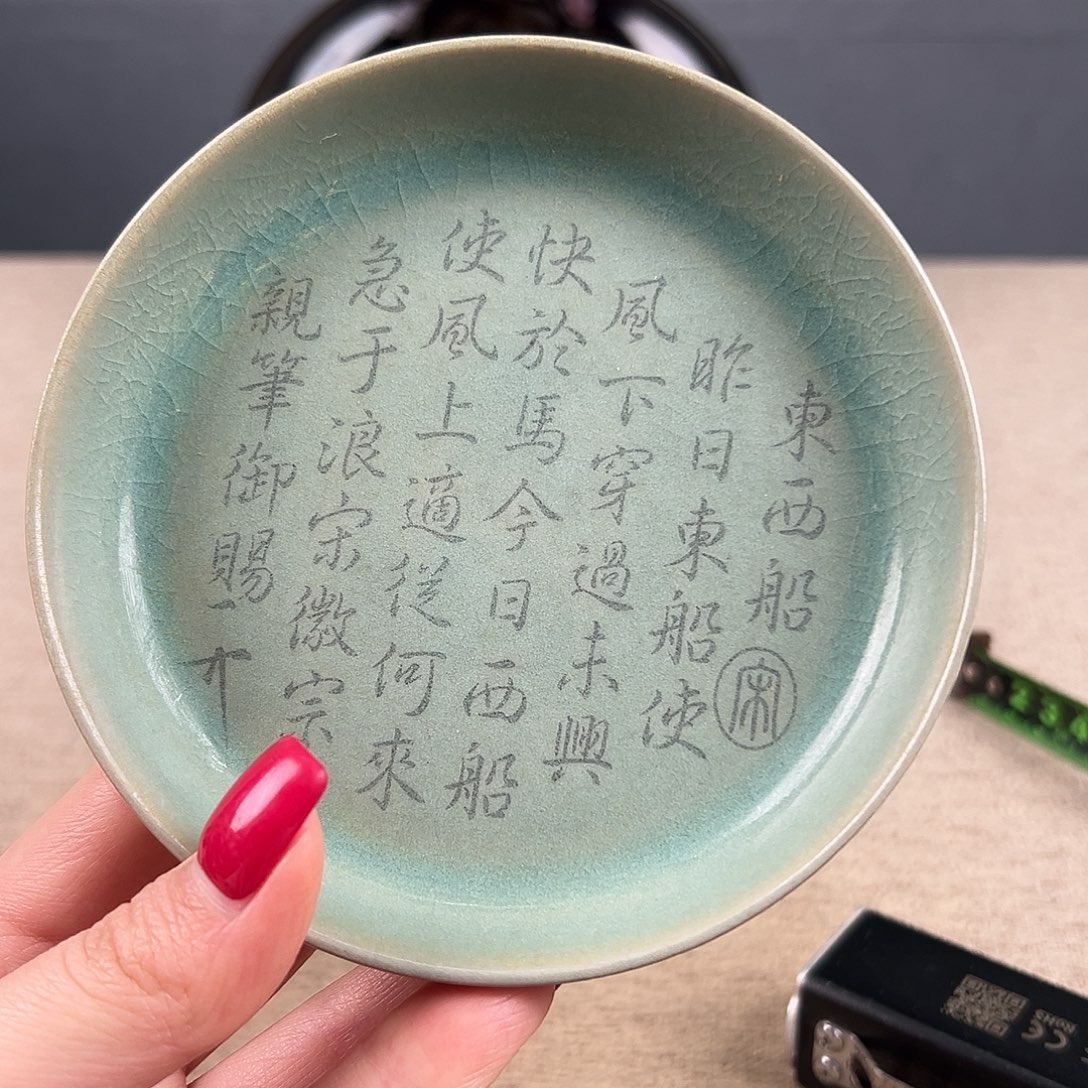 東西船
宋
昨日東船使
風下穿過未興
快於馬今日西船
使風上適從何來
急于浪宋徽宗
親筆御賜
2 3 4
CE RoHS